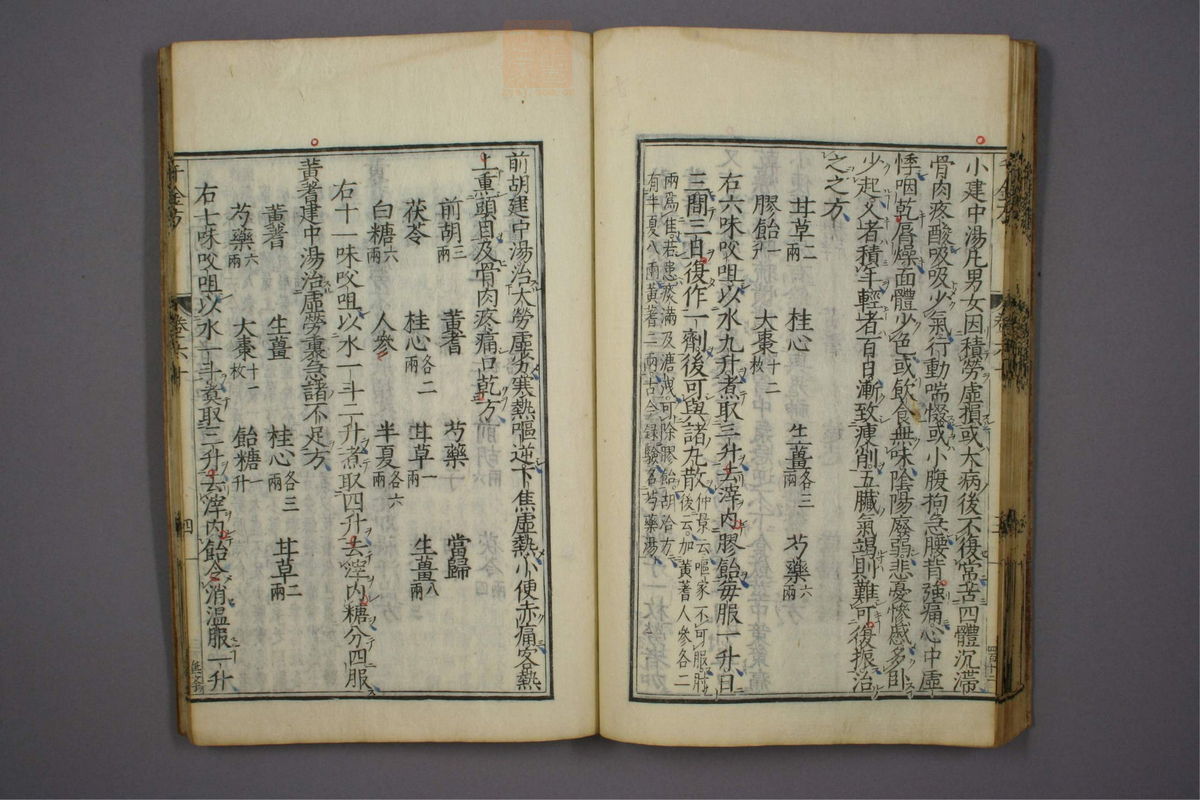 小建中湯凡男女因積勞虛損或大病後不復常苦四體沉滯
骨肉疼酸吸吸少氣行動喘惙或小腹拘急腰背強痛心中虛
悸咽乾唇燥面體少色或飲食無味陰陽廢弱悲憂慘慼多臥
少起久者積年輕者百日漸致瘦削五臟氣竭則難可復振治
之之方
甘草二兩 桂心 生薑各三兩 芍藥六兩
膠飴一升 大棗十二枚
右六味㕮咀以水九升煮取三升去滓內膠飴每服一升日
三間三日復作一劑後可與諸丸散仲景云嘔家不可服
後云加黃耆人參各二
兩為佳若患痰滿及溏洩可除膠飴胡洽方
有半夏八兩黃耆二兩古今錄驗名芍藥湯
前胡建中湯治大勞虛劣寒熱嘔逆下焦虛熱小便赤痛客熱
上熏頭目及骨肉疼痛口乾方
前胡三兩 黃耆 芍藥 當歸
茯苓 桂心各二兩 甘草一兩 生薑八兩
白糖六兩 人參 半夏各六兩
右十一味㕮咀以水一斗二升煮取四升去滓內糖分四服
黃耆建中湯治虛勞裏急諸不足方
黃耆 生薑 桂心各三兩 甘草二兩
芍藥六兩 大棗十二枚 飴糖一升
右七味㕮咀以水一斗煮取三升去滓內飴令消溫服一升
千金方
四